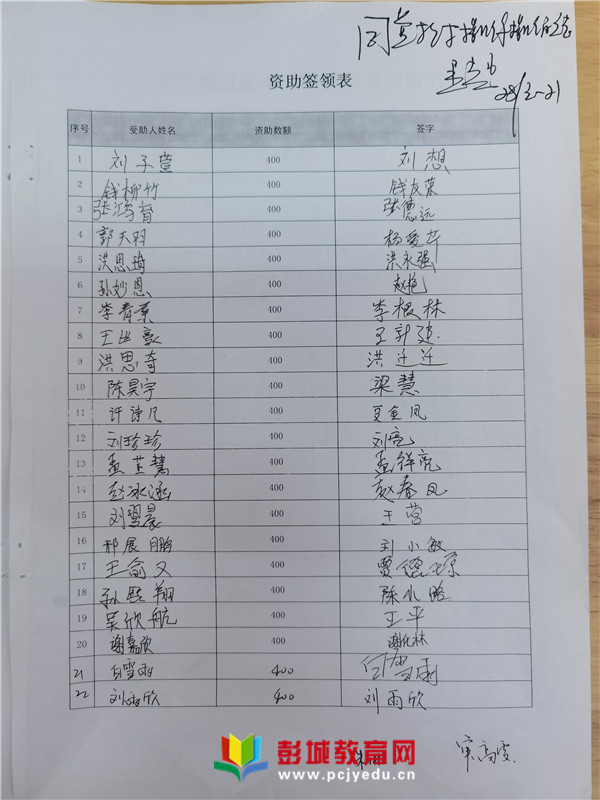 资助签领表
序号 受助人姓名 资助数额 签字
1 刘子萱 400 刘想
2 钱柳竹 400 钱友荣
3 张鸿育 400 张德远
4 郭天羽 400 杨爱芹
5 洪思琦 400 洪永强
6 孙妙恩 400 赵艳
7 李青素 400 李根林
8 王世豪 400
9 洪思奇 400 洪迁迁
10 陈昊宇 400 梁慧
11 许诗凡 400 夏金凤
12 刘珍珍 400 刘亮
13 孟芷慧 400 孟祥亮
14 赵冰涵 400 赵春凤
15 刘翌晨 400 王营
16 邢展鹏 400 刘小敏
17 王俞又 400
18 孙熙翔 400 陈小鹏
19 吴欣航 400 王平
20 谢嘉欣 400 谢化林
21 白雪雨 400 白雪雨
22 刘雨欣 400 刘雨欣
彭城教育网
www.pcjyedu.cn